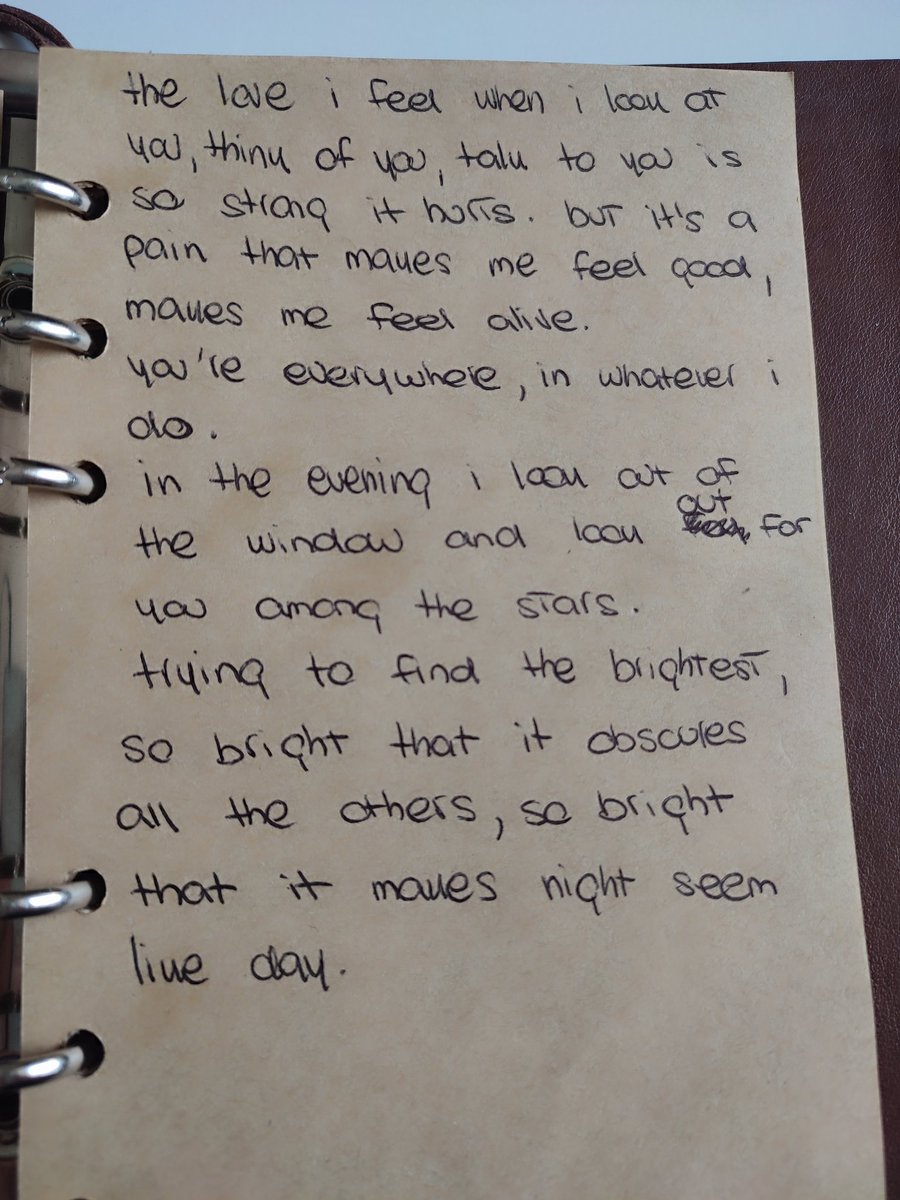 the love i feel when i look at
you, think of you, talk to you is
so strong it hurts. but it's a
pain that makes me feel good,
makes me feel alive.
you're everywhere, in whatever i
do.
in the evening i look out of
the window and look out for
you among the stars.
trying to find the brightest,
so bright that it obscures
all the others, so bright
that it makes night seem
like day.